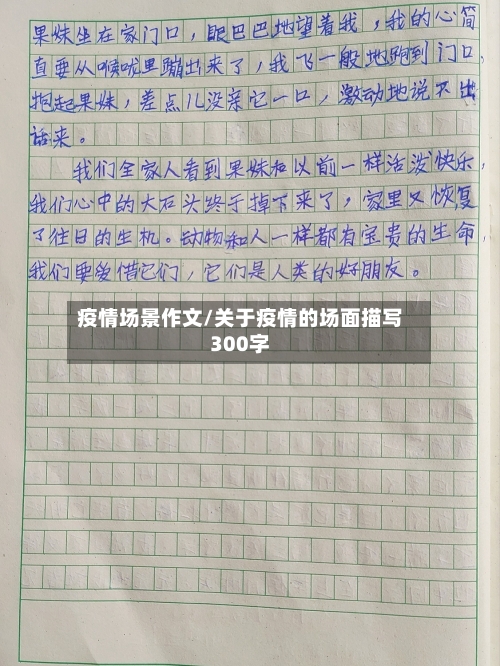 果妹坐在家门口，眼巴巴地望着我，我的心简
直要从喉咙里蹦出来了，我飞一般地跑到门口，
抱起果妹，差点儿没亲它一口，激动地说不出
话来。
我们全家人看到果妹和以前一样活泼快乐，
我们心中的大石头终于掉下来了，家里又恢复
了往日的生机。动物和人一样都有宝贵的生命，
我们要爱惜它们，它们是人类的好朋友。
疫情场景作文/关于疫情的场面描写
300字